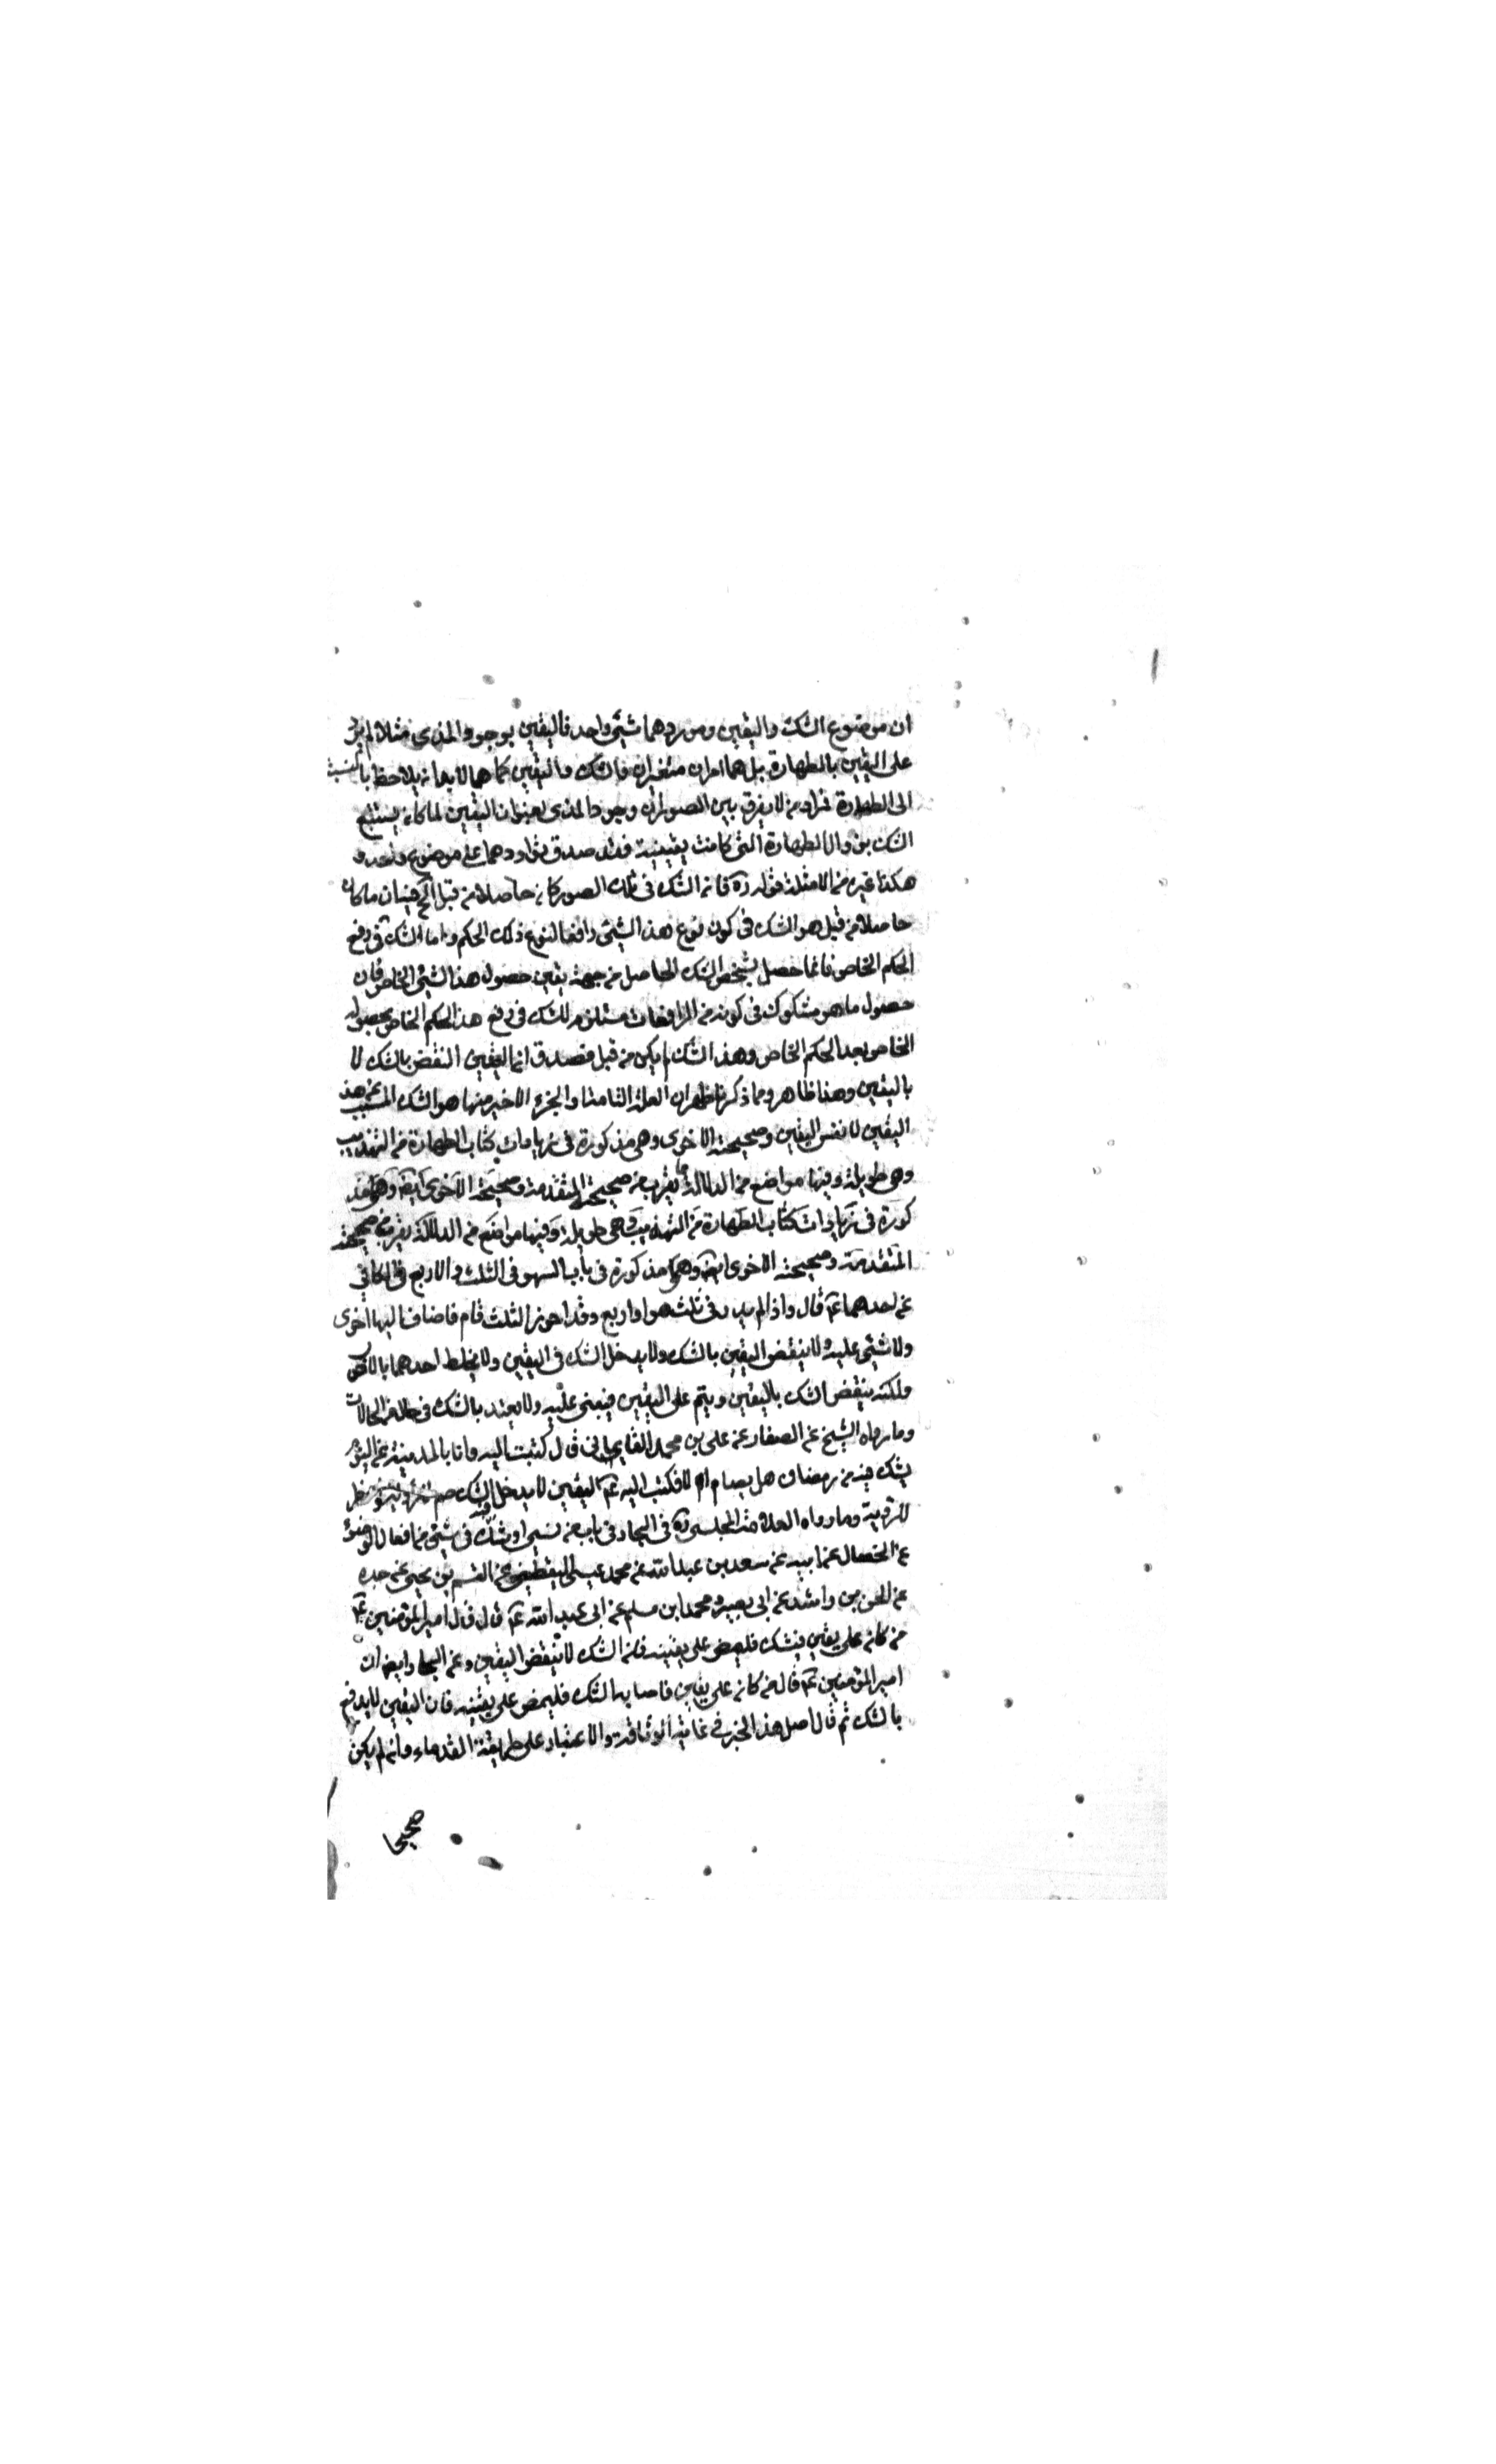 ان موضوع الشك واليقين وموردهما شيئ واحد فاليقين بوجود المذى مثلا لم يرد
على اليقين بالطهارة بل هما امران متغايران فالشك واليقين كما هما لابد ان يلاحظ بالنسبة
الى الطهارة فراده من لا يفرق بين الصور ان وجود المذى بعنوان اليقين لما كان يستتبع
الشك بزوال الطهارة التى كانت يقينية فقد صدق تواردهما على موضوع واحد و
هكذا غيره من الامثلة قوله ره فان الشك فى تلك الصور كان حاصلا من قبل الخ فيه ان ما كان
حاصلا من قبل هو الشك فى كون نوع هذا الشيئ رافعا لنوع ذلك الحكم واما الشك فى رفع
الحكم الخاص فانما حصل بشخص الشك الحاصل من جهة يقين حصول هذا الشيئ الخاص فان
حصول ما هو مشكوك فى كونه من الرافعات مستلزم للشك فى رفع هذا الحكم الخاص بحصوله
الخاص بعد الحكم الخاص وهذا الشك لم يكن من قبل فصدق انما اليقين انتقض بالشك لا
باليقين وهذا ظاهر ومما ذكرنا ظهر ان العلة التامة او الجزء الاخير منها هو الشك المسبب عن هذ
اليقين لا نفس اليقين وصحيحته الاخرى وهى مذكورة فى زيادات كتاب الطهارة من التهذيب
وهى طويلة وفيها مواضع من الدلالة يقرب من صحيحته المتقدمة وصحيحته الاخرى ايضا وهى مذ
كورة فى زيادات كتاب الطهارة من التهذيب وهى طويلة وفيها مواضع من الدلالة يقرب من صحيحته
المتقدمة وصحيحته الاخرى ايضا وهى مذكورة فى باب السهو فى الثلث والاربع فى الكافي
عن احدهما عم قال واذا لم يدر فى ثلث هو او اربع وقد احرز الثلث قام فاضاف اليها اخرى
ولا شيئ عليه ولا ينقض اليقين بالشك ولا يدخل الشك فى اليقين ولا يخلط احدهما بالاخر
ولكنه ينقض الشك باليقين ويتم على اليقين فيبنى عليه ولا يعتد بالشك فى حال من الحالات
وما رواه الشيخ عن الصفار عن على بن محمد القاسانى قال كتبت اليه وانا بالمدينة عن اليوم
يشك فيه من رمضان هل يصام ام لا فكتب اليه عم اليقين لا يدخل فيه الشك صم للرؤية وافطر
للرؤية وما رواه العلامة المجلسى ره فى البحار فى باب من نسى او شك فى شيئ من افعال الوضوء
عن الخصال عن ابيه عن سعد بن عبد الله عن محمد عيسى اليقطينى عن القسم بن يحيى عن جده
عن الحسن بن راشد عن ابى بصير ومحمد ابن مسلم عن ابى عبد الله عم قال قال امير المؤمنين عم
من كان على يقين فشك فليمض على يقينه فان الشك لا ينقض اليقين وعن البحار ايضا ان
امير المؤمنين عم قال من كان على يقين فاصابه الشك فليمض على يقينه فان اليقين لا يدفع
بالشك ثم قال اصل هذا الخبر فى غاية الوثاقة والاعتبار على طريقة القدماء وان لم يكن
صحيحا